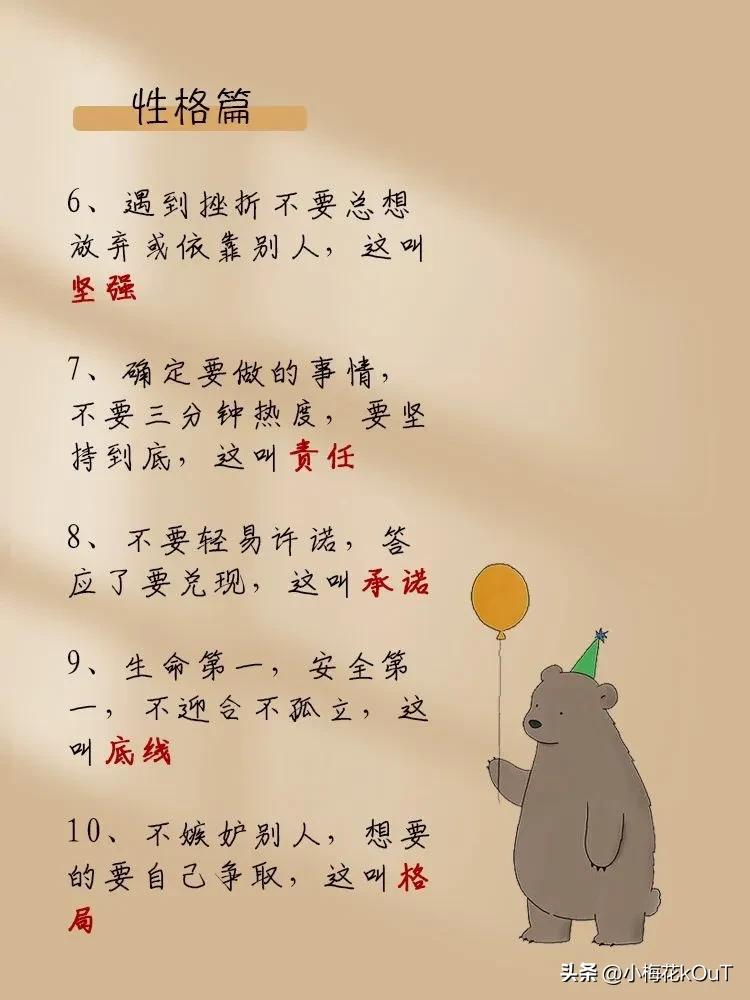 性格篇
6、遇到挫折不要总想
放弃或依靠别人，这叫
坚强
7、确定要做的事情，
不要三分钟热度，要坚
持到底，这叫责任
8、不要轻易许诺，答
应了要兑现，这叫承诺
9、生命第一，安全第
一，不迎合不孤立，这
叫底线
10、不嫉妒别人，想要
的要自己争取，这叫格
局
头条 @小梅花kOuT